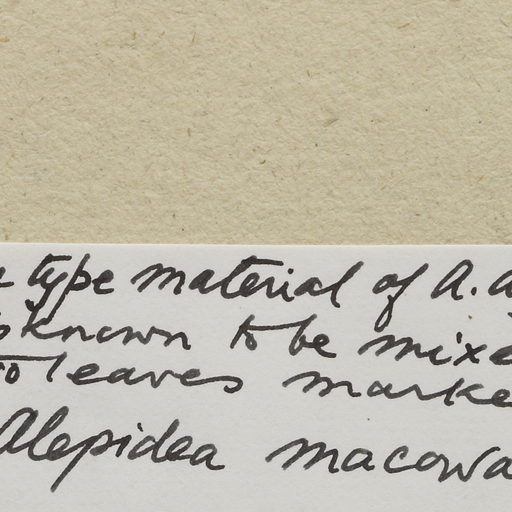 type material of A. a
is known to be mixe
to leaves marke
Alepidea macowa